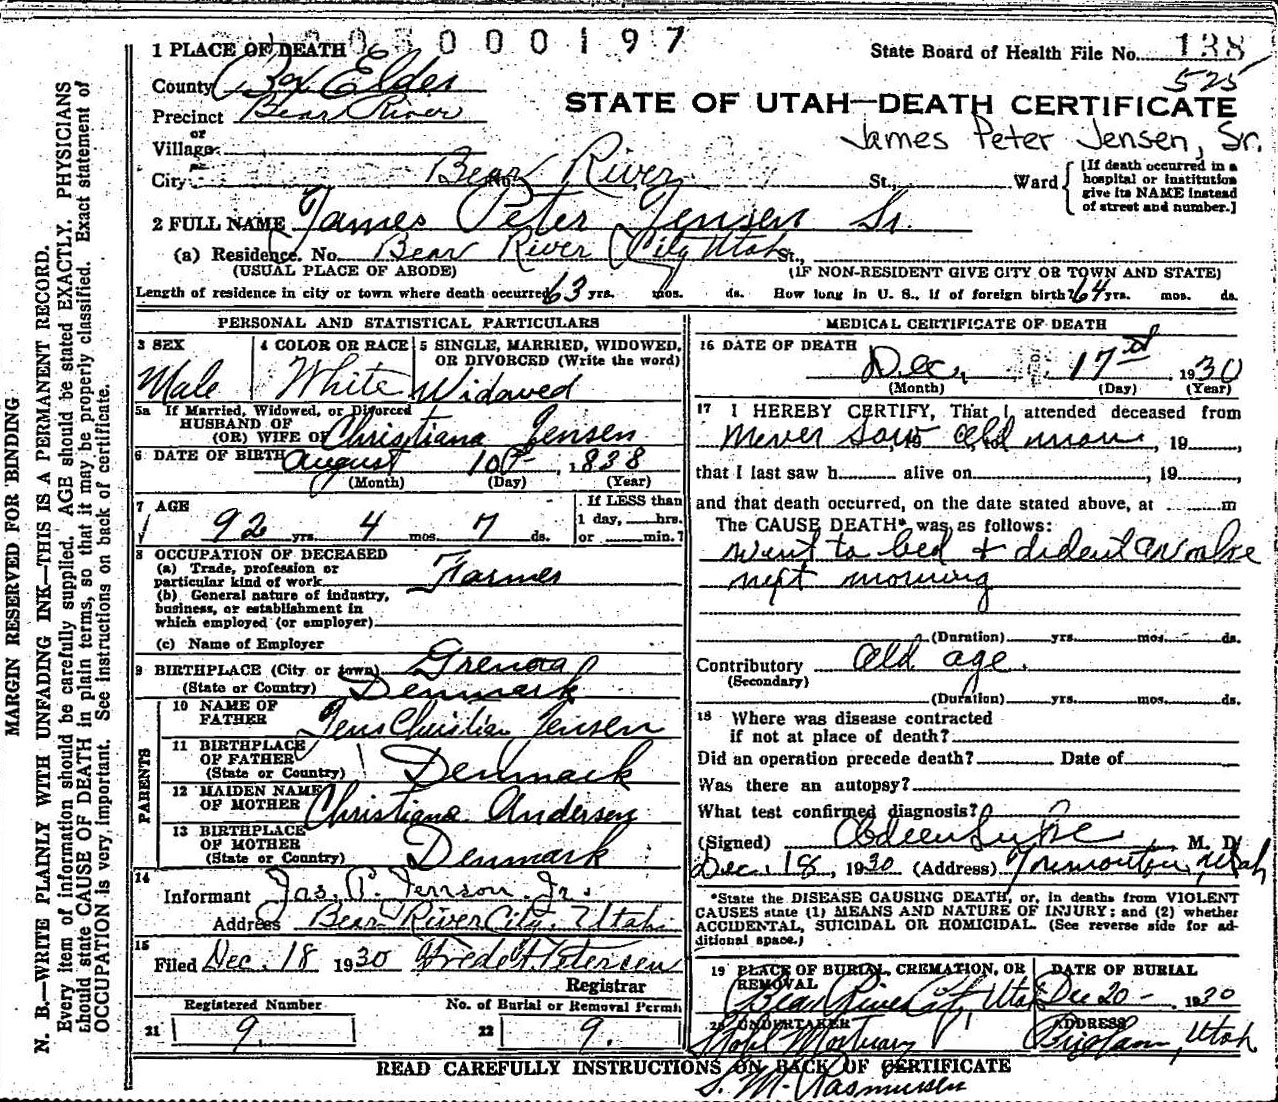 1 PLACE OF DEATH
000197
State Board of Health File No. 138
County Box Elder
525
STATE OF UTAH—DEATH CERTIFICATE
Precinct Bear River
James Peter Jensen, Sr.
or
Village
City Bear River No. St., Ward
[If death occurred in a
hospital or institution
give its NAME instead
of street and number.]
2 FULL NAME James Peter Jensen Sr.
(a) Residence. No. Bear River City Utah St.,
(USUAL PLACE OF ABODE) (IF NON-RESIDENT GIVE CITY OR TOWN AND STATE)
Length of residence in city or town where death occurred 63 yrs. mos. ds. How long in U. S., if of foreign birth? 64 yrs. mos. ds.
PERSONAL AND STATISTICAL PARTICULARS
3 SEX
Male
4 COLOR OR RACE
White
5 SINGLE, MARRIED, WIDOWED,
OR DIVORCED (Write the word)
Widowed
5a If Married, Widowed, or Divorced
HUSBAND OF
(OR) WIFE OF Christiana Jensen
6 DATE OF BIRTH August 10 1838
(Month) (Day) (Year)
7 AGE
92 yrs. 4 mos. 7 ds.
If LESS than
1 day, hrs.
or min.?
8 OCCUPATION OF DECEASED
(a) Trade, profession or
particular kind of work Farmer
(b) General nature of industry,
business, or establishment in
which employed (or employer)
(c) Name of Employer
9 BIRTHPLACE (City or town)
(State or Country) Denmark
PARENTS
10 NAME OF
FATHER Jens Christian Jensen
11 BIRTHPLACE
OF FATHER
(State or Country) Denmark
12 MAIDEN NAME
OF MOTHER Christiana Andersen
13 BIRTHPLACE
OF MOTHER
(State or Country) Denmark
14
Informant Jas. P. Jenson Jr.
Address Bear River City, Utah.
15
Filed Dec. 18 1930
Registrar
Registered Number No. of Burial or Removal Permit
21 9. 22 9.
MEDICAL CERTIFICATE OF DEATH
16 DATE OF DEATH
Dec. 17 1930
(Month) (Day) (Year)
17 I HEREBY CERTIFY, That I attended deceased from
never saw old man, 19
that I last saw h alive on , 19
and that death occurred, on the date stated above, at m
The CAUSE DEATH* was as follows:
went to bed + dident awake
next morning
(Duration) yrs. mos. ds.
Contributory old age.
(Secondary)
(Duration) yrs. mos. ds.
18 Where was disease contracted
if not at place of death?
Did an operation precede death? Date of
Was there an autopsy?
What test confirmed diagnosis?
(Signed) M. D.
Dec. 18, 1930 (Address) Tremonton, Utah
*State the DISEASE CAUSING DEATH, or, in deaths from VIOLENT
CAUSES state (1) MEANS AND NATURE OF INJURY; and (2) whether
ACCIDENTAL, SUICIDAL OR HOMICIDAL. (See reverse side for ad-
ditional space.)
19 PLACE OF BURIAL, CREMATION, OR
REMOVAL
Bear River City, Utah
DATE OF BURIAL
Dec 20 - 1930
20 UNDERTAKER
Mortuary
ADDRESS
Brigham, Utah
READ CAREFULLY INSTRUCTIONS ON BACK OF CERTIFICATE
S. M. Rasmussen
MARGIN RESERVED FOR BINDING
N. B.—WRITE PLAINLY WITH UNFADING INK—THIS IS A PERMANENT RECORD.
Every item of information should be carefully supplied. AGE should be stated EXACTLY. PHYSICIANS
should state CAUSE OF DEATH in plain terms, so that it may be properly classified. Exact statement of
OCCUPATION is very important. See instructions on back of certificate.